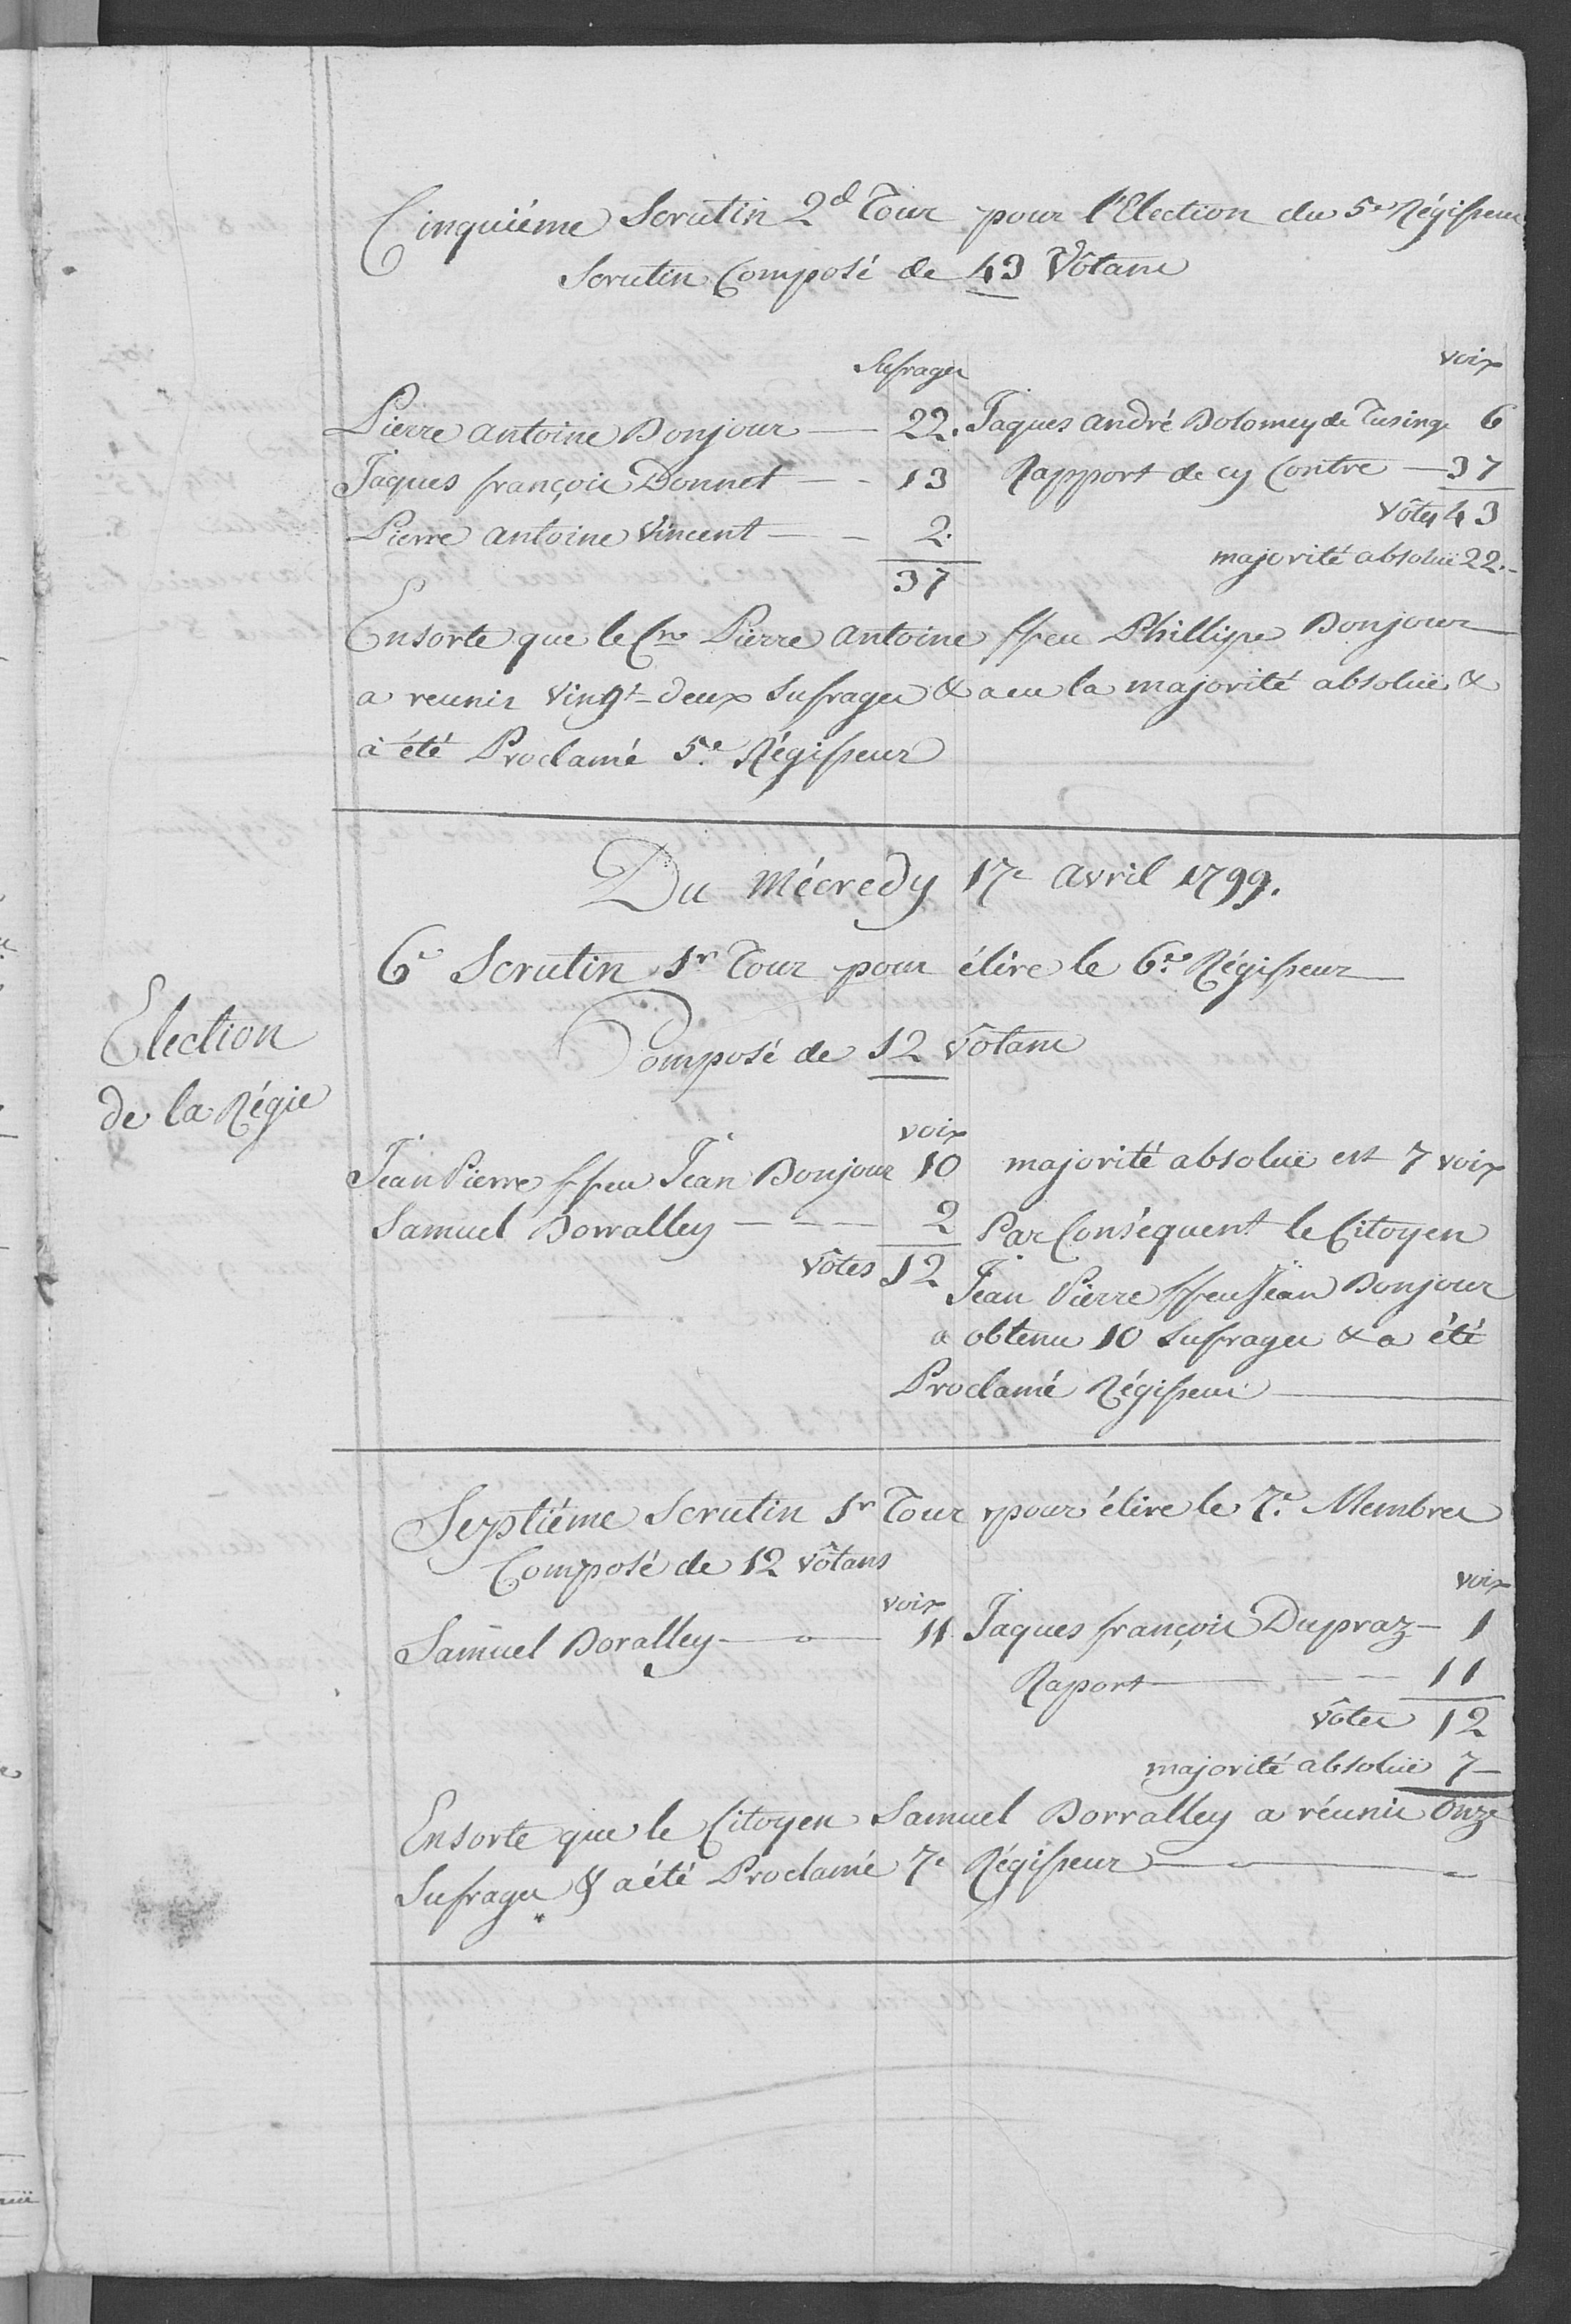 Cinquiéme Scrutin 2d Tour pour l'Election du 5e Régisseur
Scrutin Composé de 43 Vôtans
Sufrages
Pierre antoine Bonjour — 22.
Jaques françois Donnet — - 13
Pierre antoine Vincent — - 2.
37
voix
Jaques andré Dolomey de Tusinge 6
Rapport de cy Contre — 37
Vôtes 43
majorité absoluë 22.-
Ensorte que le Cn Pierre antoine ffeu Phillipe Bonjour
a reunir vingt-deux Sufrages & a eu la majorité absoluë &
à été Proclamé 5e. Régisseur
Du Mécredy 17e avril 1799.
6e Scrutin 1r Tour pour élire le 6e. Régisseur
Composé de 12 Vôtans
Election
de la Régie
voix
Jean Pierre ffeu Jean Bonjour 10
Samuel Dorralley - - - 2
Vôtes 12
majorité absoluë est 7 voix
Par Conséquent le Citoyen
Jean Pierre ffeu Jean Bonjour
a obtenu 10 Sufrages & a été
Proclamé Régisseur
Septiéme Scrutin 1r Tour pour élire le 7e. Membres
Composé de 12 Vôtans
voix
Samuel Doralley — 11
voix
Jaques françois Dupraz — 1
Raport — 11
Vôtes 12
majorité absoluë 7 —
Ensorte que le Citoyen Samuel Dorralley a réunir Onze
Sufrages & a été Proclamé 7e Régisseur